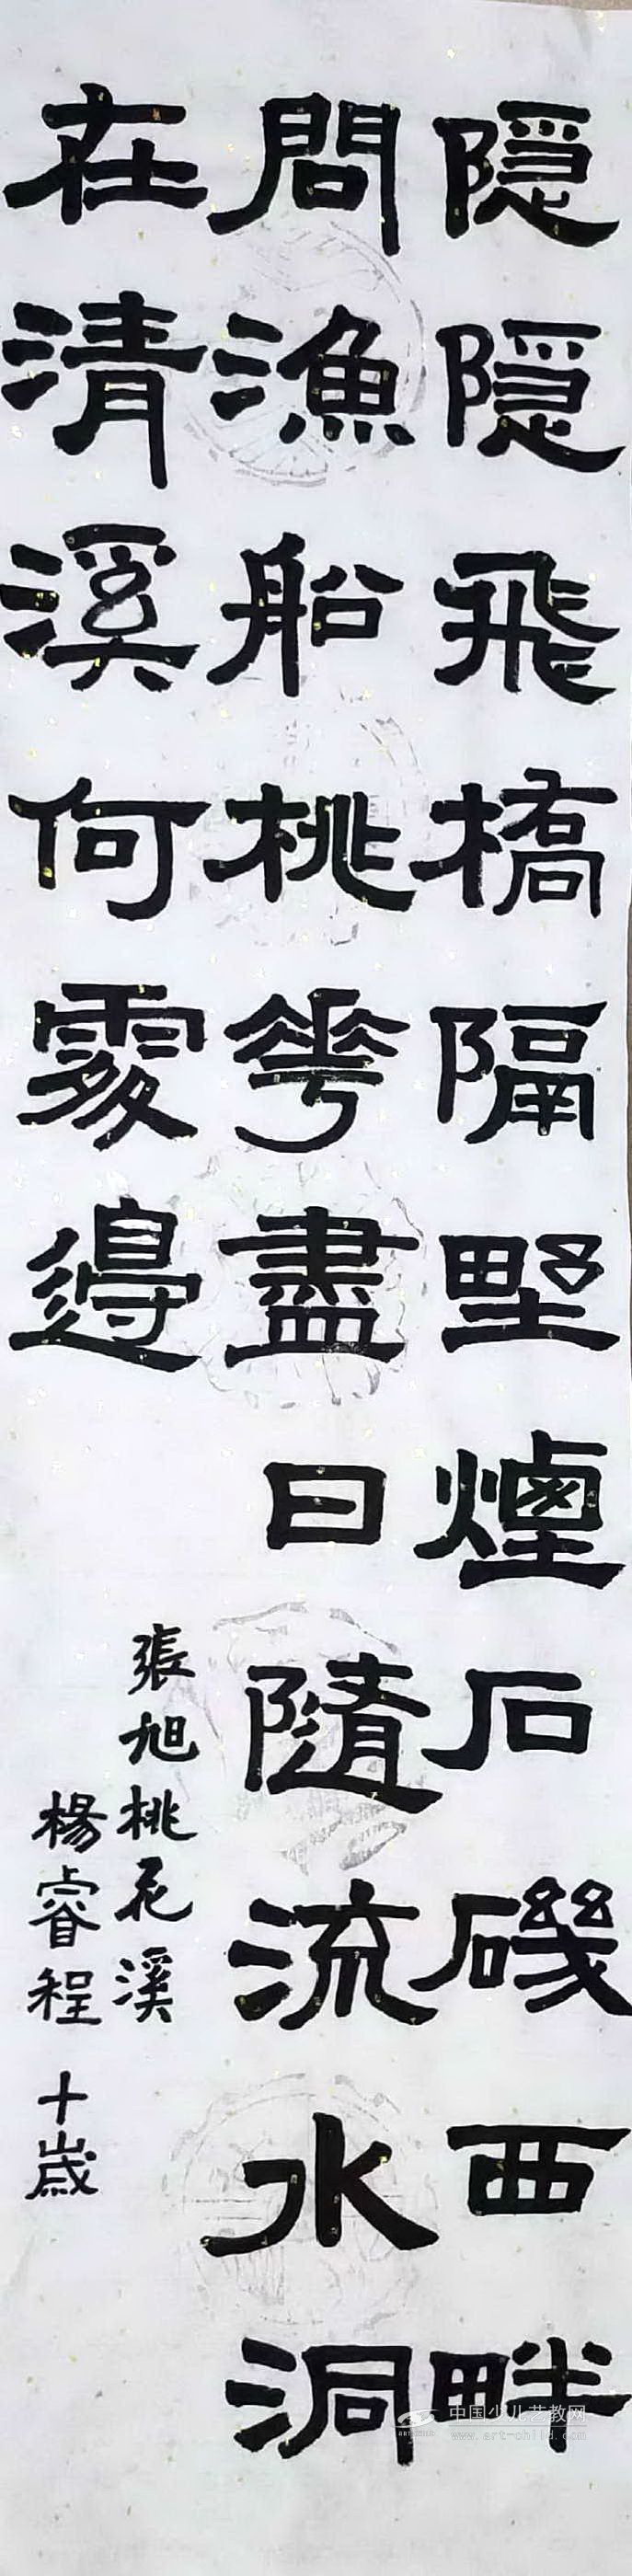 隱隱飛橋隔野煙石磯西畔
問漁船桃花盡日隨流水洞
在清溪何處邊
張旭桃花溪
楊睿程 十歲
中国少儿艺教网
www.art-child.com